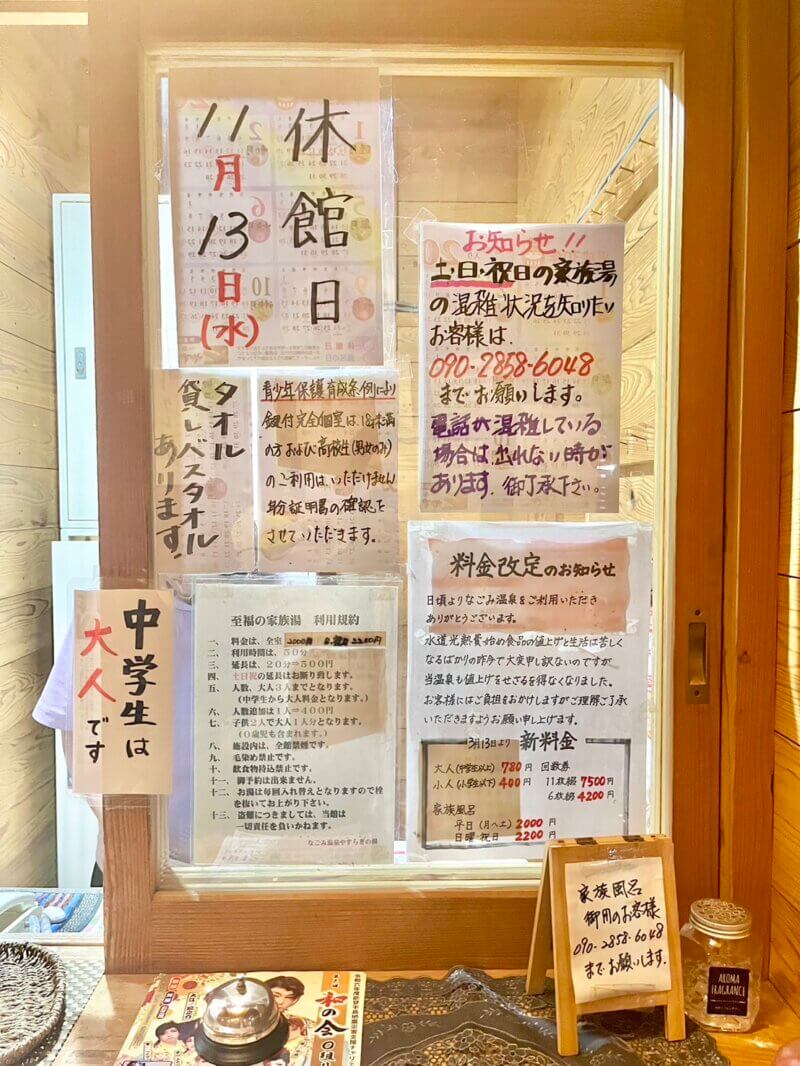 休館日
11月13日(水)
お知らせ!!
土・日・祝日の家族湯
の混雑状況を知りたい
お客様は、
090-2858-6048
までお願いします。
電話が混雑している
場合は出れない時が
あります。御了承下さい。
タオル
貸しバスタオル
あります!
青少年保護育成条例により
鍵付完全個室は、18才未満
の方および高校生(男女のみ)
のご利用は、いただけません
身分証明書の確認を
させていただきます。
料金改定のお知らせ
日頃よりなごみ温泉をご利用いただき
ありがとうございます。
水道光熱費始め食品の値上げと生活は苦しく
なるばかりの昨今で大変申し訳ないのですが
当温泉も値上げをせざるを得なくなりました。
お客様にはご負担をおかけしますがご理解ご了承
いただきますようお願い申し上げます。
3月13日より 新料金
大人(中学生以上) 780円 回数券
小人(小学生以下) 400円 11枚綴 7500円
6枚綴 4200円
家族風呂
平日(月〜土) 2000円
日曜祝日 2200円
中学生は
大人です
至福の家族湯 利用規約
一、 料金は、全室 2000円 2200円
二、 利用時間は、50分
三、 延長は、20分⇒500円
四、 土日祝の延長はお断り致します。
五、 人数、大人3人までとなります。
(中学生から大人料金となります。)
六、 人数追加は1人⇒400円
七、 子供2人で大人1人分となります。
(0歳児も含まれます。)
八、 施設内は、全館禁煙です。
九、 毛染め禁止です。
十、 飲食物持込禁止です。
十一、 御予約は出来ません。
十二、 お湯は毎回入れ替えとなりますので栓
を抜いてお上がり下さい。
十三、 盗難につきましては、当館は
一切責任を負いかねます。
なごみ温泉やすらぎの湯
家族風呂
御用のお客様
090-2858-6048
までお願いします。
AROMA
FRAGRANCE
和の会